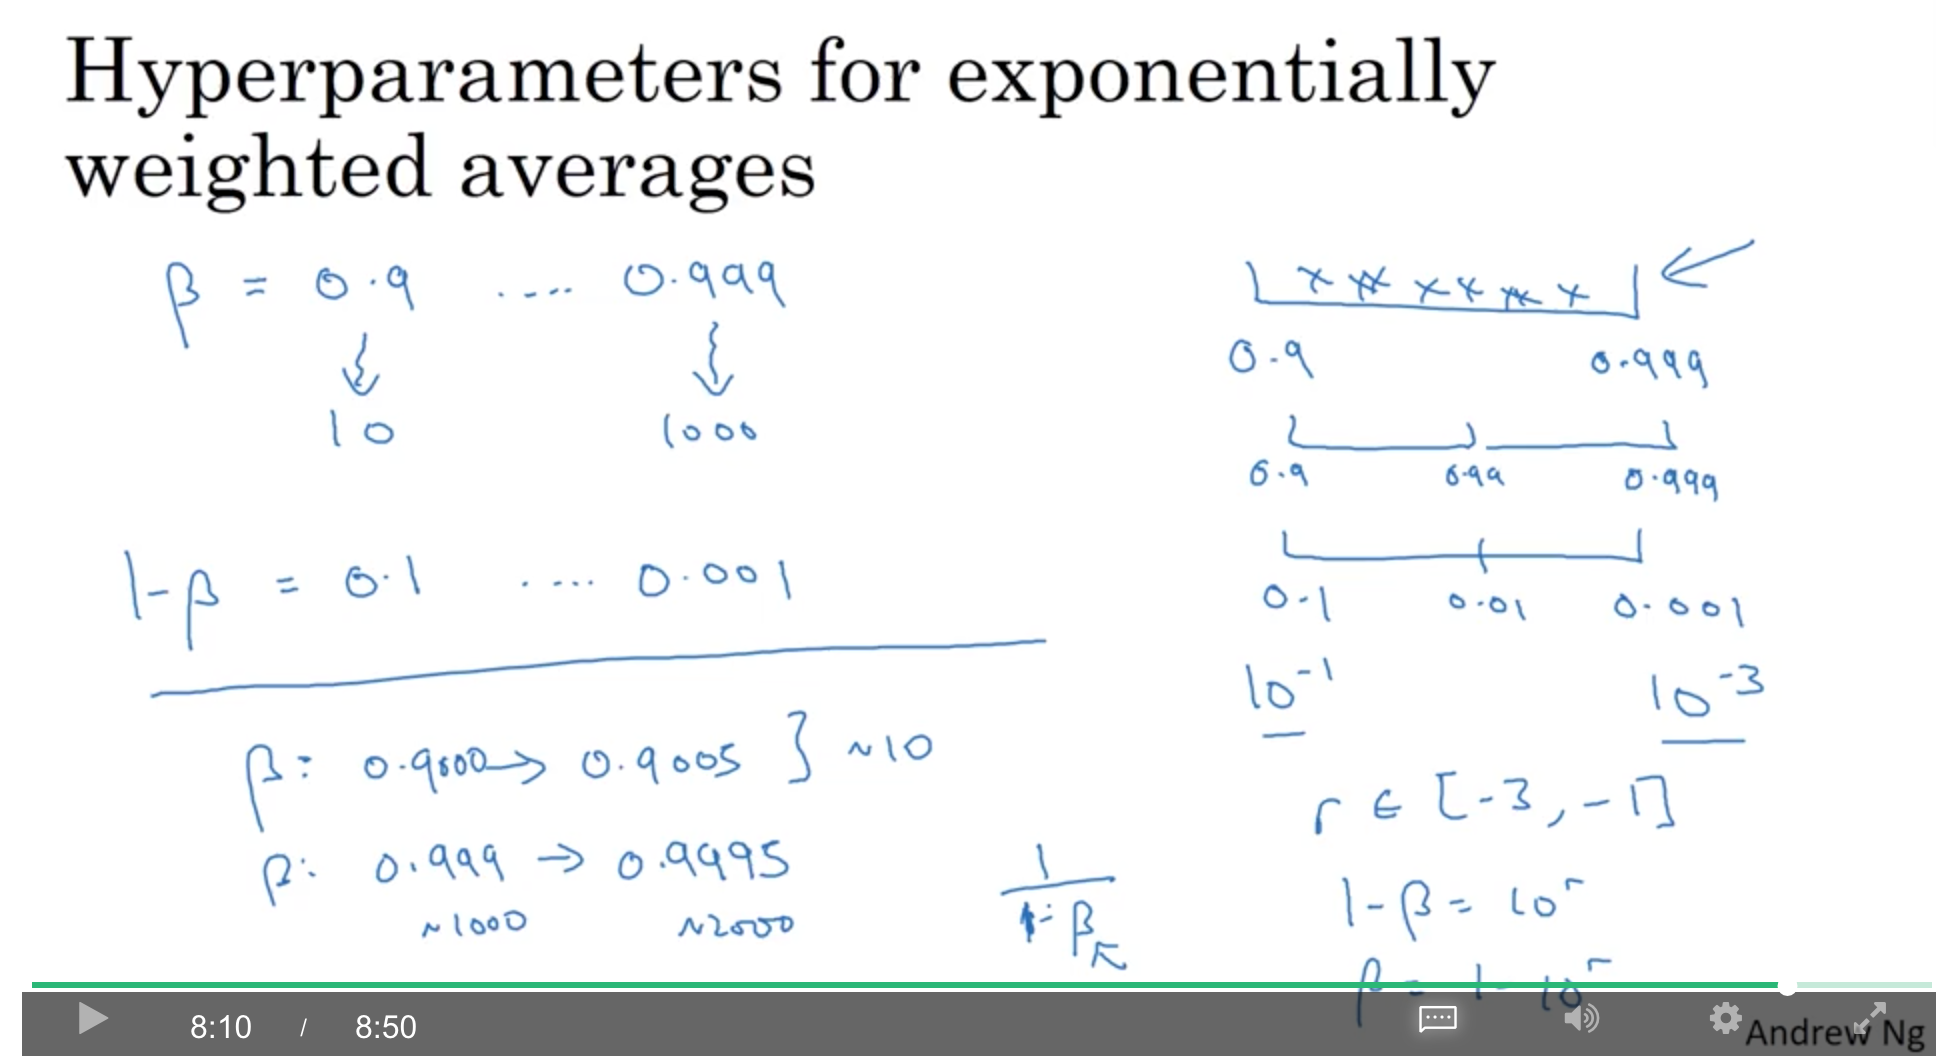 Hyperparameters for exponentially
weighted averages
β = 0.9 .... 0.999
10 1000
1-β = 0.1 .... 0.001
β: 0.9000 → 0.9005 } ~10
β: 0.999 → 0.9995
~1000 ~2000
1
1-β
0.9 0.999
0.9 0.99 0.999
0.1 0.01 0.001
10⁻¹ 10⁻³
r ∈ [-3, -1]
1-β = 10ʳ
β = 1-10ʳ
8:10 / 8:50
Andrew Ng